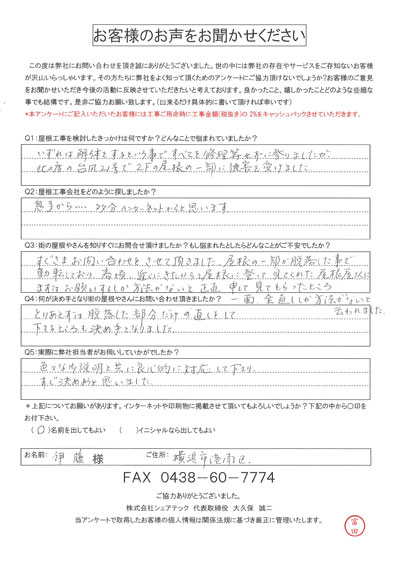 お客様のお声をお聞かせください
この度は弊社にお問い合わせを頂き誠にありがとうございました。世の中には弊社の存在やサービスをご存知ないお客様
が沢山いらっしゃいます。その方たちに弊社をよく知って頂くためのアンケートにご協力頂けないでしょうか?お客様のご意見
をお聞かせいただき今後の活動に反映させていただきたいと考えております。良かったこと、嬉しかったことどのような些細な
事でも結構です。是非ご協力お願い致します。(出来るだけ具体的に書いて頂ければ幸いです)
*本アンケートにご記入いただいたお客様には工事ご用命時に工事金額(税抜き)の 2%をキャッシュバックさせていただきます。
Q1:屋根工事を検討したきっかけは何ですか?どんなことで悩まれていましたか?
いずれは解体をするという事ですべてを修理等せずに参りましたが
の台風21号で2Fの屋根の一部に被害を受けました。
Q2:屋根工事会社をどのように探しましたか?
息子から‥‥多分インターネットからと思います
Q3:街の屋根やさんを知りすぐにお問合せ頂けましたか?もし悩まれたとしたらどんなことがご不安でしたか?
すぐさまお問い合わせをさせて頂きました。屋根の一部が脱落した事で
動転しており、
屋根に登って見てくれた屋根屋さんに
まずはお願いするしか方法がないと正直申して見てもらったところ
一面全直ししか方法がないと
云われました。
Q4:何が決め手となり街の屋根やさんにお問い合わせ頂きましたか?
とりあえずは脱落した部分だけの直しをして
下さるところも決め手となりました。
Q5:実際に弊社担当者がお伺いしていかがでしたか?
色々な御説明と共に良心的に対応して下さり、
すぐ決めようと思いました。
*上記についてお願いがあります。インターネットや印刷物に掲載させて頂いてもよろしいでしょうか?下記の中から○印を
お付下さい。
(○)名前を出してもよい ( )イニシャルなら出してもよい
お名前: 伊藤 様 ご住所: 横浜市港南区
FAX 0438-60-7774
ご協力ありがとうございました。
株式会社シェアテック 代表取締役 大久保 誠二
当アンケートで取得したお客様の個人情報は関係法規に基づき厳正に管理いたします。
富田